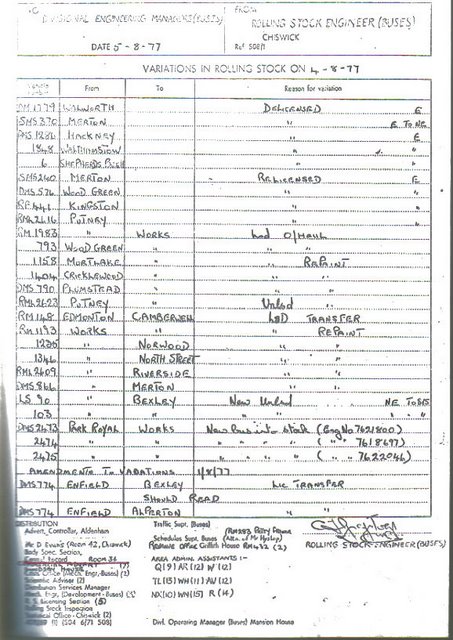 TO
DIVISIONAL ENGINEERING MANAGERS (BUSES)
DATE 5-8-77
FROM
ROLLING STOCK ENGINEER (BUSES)
CHISWICK
Ref 508/1
VARIATIONS IN ROLLING STOCK ON 4-8-77
Vehicle number From To Reason for variation
RM1779 WALWORTH DELICENSED E
SMS370 MERTON " E TO NE
DMS1286 HACKNEY " E
1848 WALTHAMSTOW " " "
6 SHEPHERDS BUSH " "
SMS260 MERTON RELICENSED E
DMS576 WOOD GREEN " "
KINGSTON " "
RML2616 PUTNEY " "
RM1983 " WORKS Lsd O/Haul
793 WOOD GREEN " " "
1158 MORTLAKE " " REPAINT
1404 CRICKLEWOOD " " "
DMS790 PLUMSTEAD " " "
RML2623 PUTNEY " Unlsd "
RM148 EDMONTON CAMBERWELL LSD TRANSFER
RM1193 WORKS " " REPAINT
1235 " NORWOOD " "
1346 " NORTH STREET " "
RML2609 " RIVERSIDE " "
DMS866 " MERTON " "
LS 90 " BEXLEY New Unlsd NE TO SIS
103 " " " " " "
DMS2473 PARK ROYAL WORKS New bus into stock (Eng No 7621800)
2474 " " " " " " ( " " 7618697)
2475 " " " " " " ( " " 7622046)
AMENDMENTS TO VARIATIONS 1/8/77
DMS774 ENFIELD BEXLEY LIC TRANSFER
SHOULD READ
DMS774 ENFIELD ALPERTON " "
DISTRIBUTION
Advert. Controller, Aldenham
Mr D Evans (ROOM 42, Chiswick)
Body Spec. Section,
ROOM 36
Scientific Adviser (2)
Distribution Services Manager
Mech. Engr. (Development - Buses) (3)
R.S. Licensing Section (5)
Rolling Stock Inspection
Technical Office - Chiswick (2)
Traffic Supt. (Buses)
Schedules Supt. Buses (Attn. of Mr Hyslop)
Griffith House RM 432 (2)
AREA ADMIN ASSISTANTS :-
Q(9) AR(12) W(12)
TL(15) WH(11) AV(12)
NX(10) WN(15) R(14)
Divl. Operating Manager (Buses) Mansion House
ROLLING STOCK ENGINEER (BUSES)